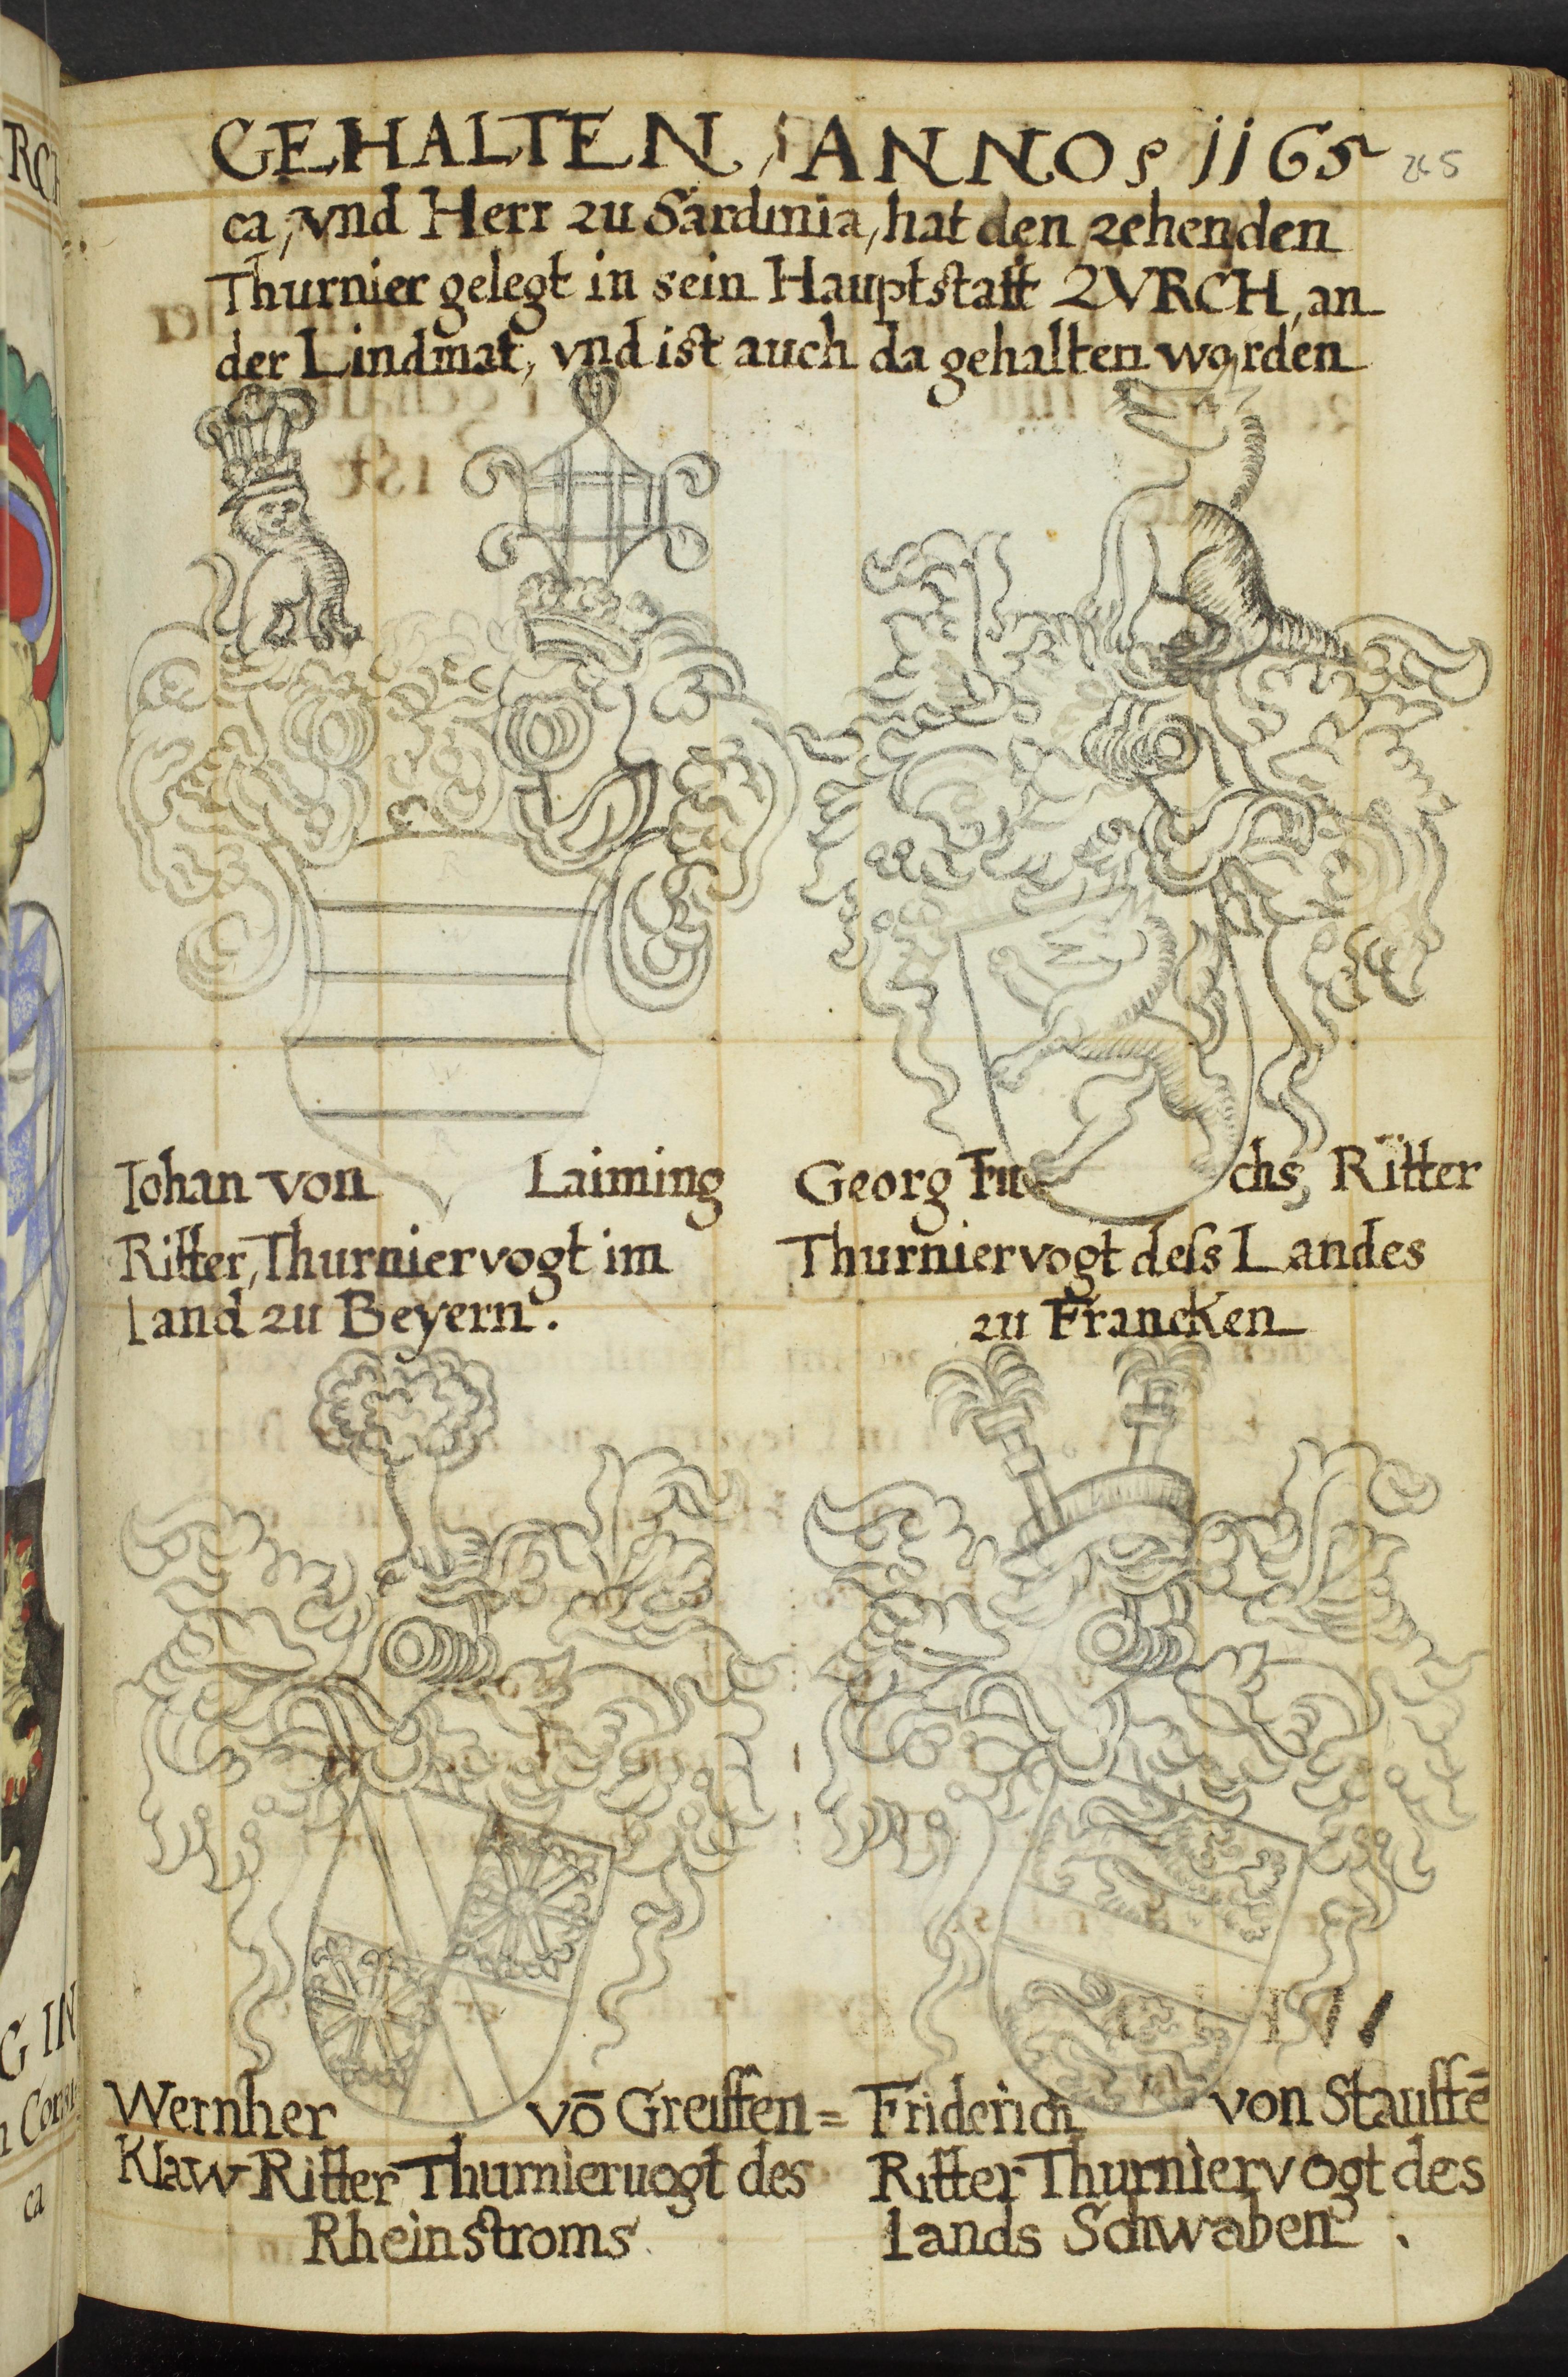 GEHALTEN, ANNO, 1165
265
ca, vnd Herr zu Sardinia, hat den zehenden
Thurnier gelegt in sein Hauptstatt ZVRCH, an
der Lindmat, vnd ist auch da gehalten worden
Iohan von Laiming
Ritter, Thurniervogt im
Land zu Beyern.
Georg Fuchs, Ritter
Thurniervogt dess Landes
zu Francken
Wernher vō Greiffen=
Klaw Ritter Thurnieruogt des
Rheinstroms
Friderich von Stauffē
Ritter Thurniervogt des
Lands Schwaben.